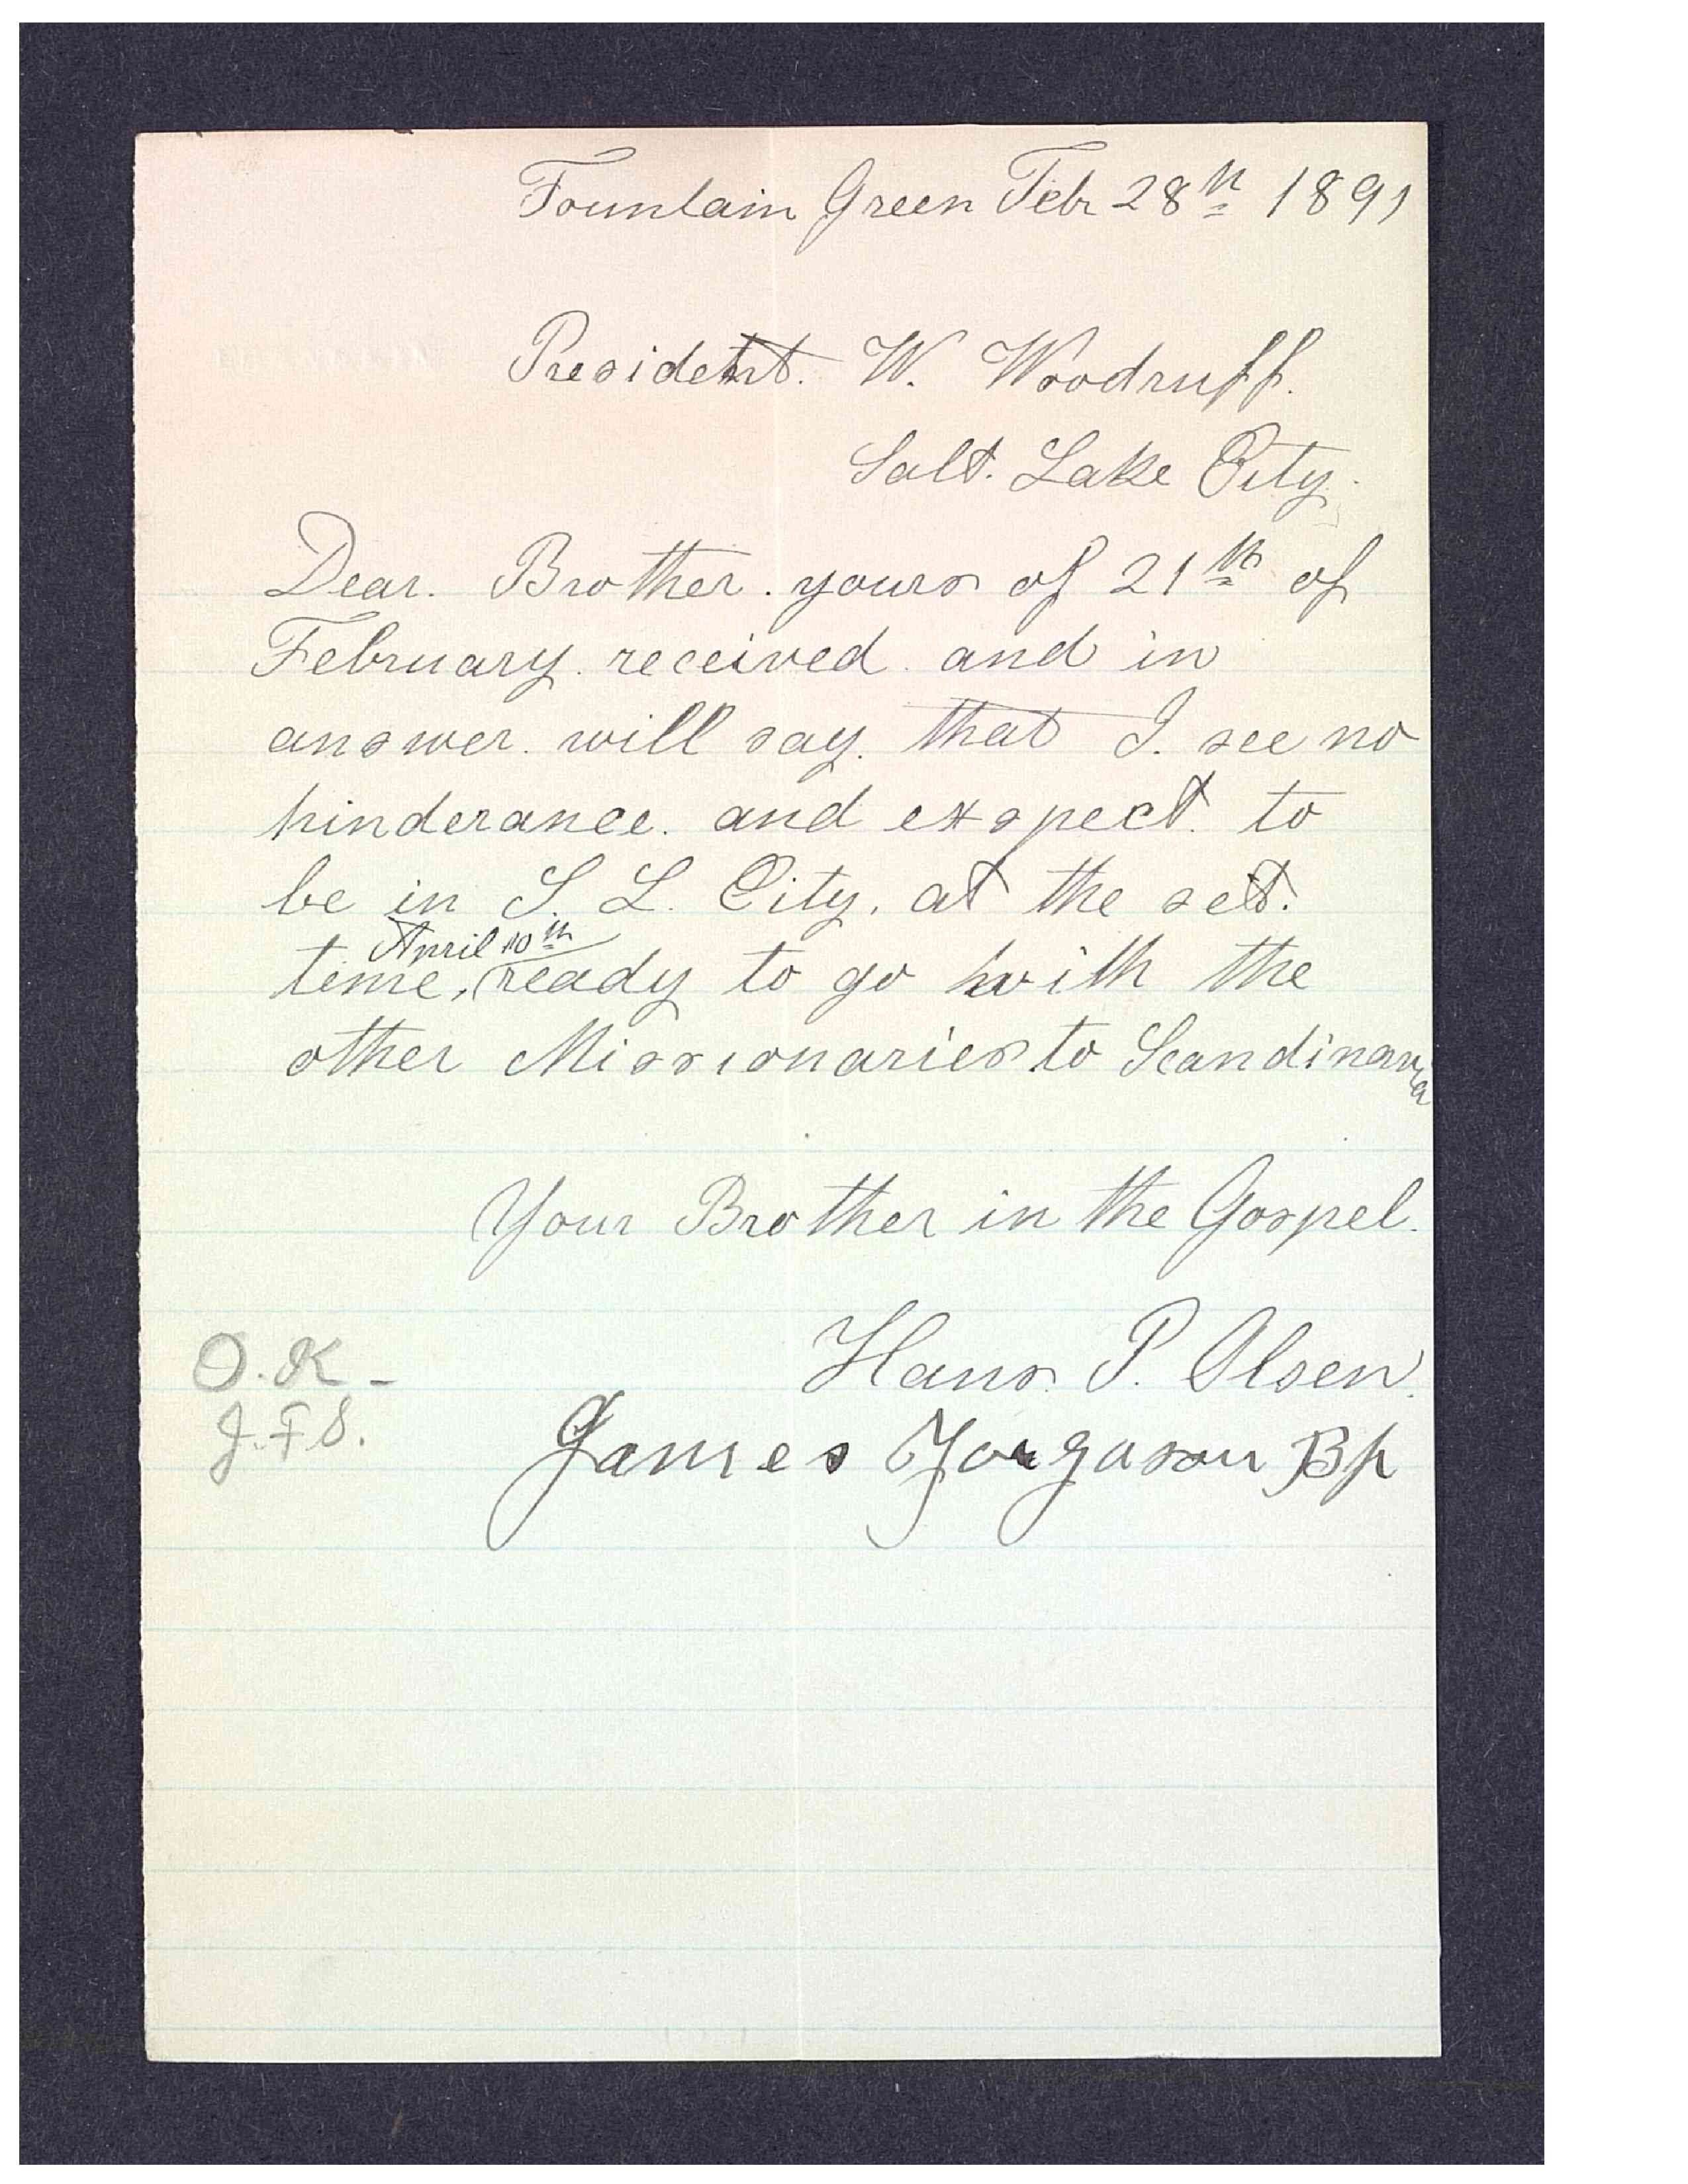 Fountain Green Febr 28th 1891
President. W. Woodruff.
Salt. Lake City.
Dear. Brother. yours of 21th of
February. received. and in
answer. will say. that I. see no
hinderance. and exspect. to
be in S. L. City. at the set.
April 10th
time, ready to go with the
other Missionaries to Scandinavia
Your Brother in the Gospel.
Hans. P. Olsen.
O.K -
J.F.S.
James Yorgason Bp